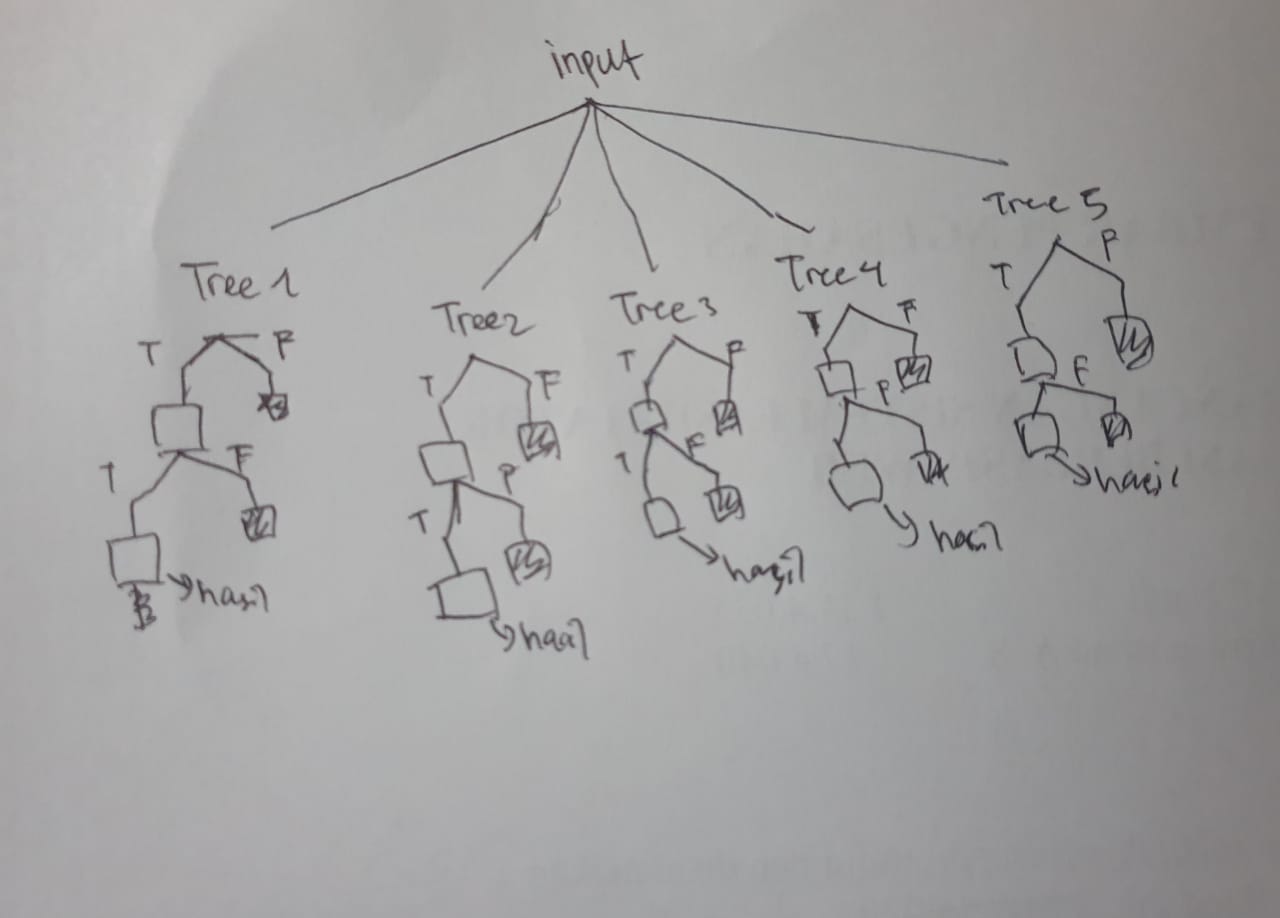 input
Tree 1
T F
T F
hasil
Tree2
T F
T F
hasil
Tree 3
T F
T F
hasil
Tree 4
T F
F
hasil
Tree 5
T F
F
hasil